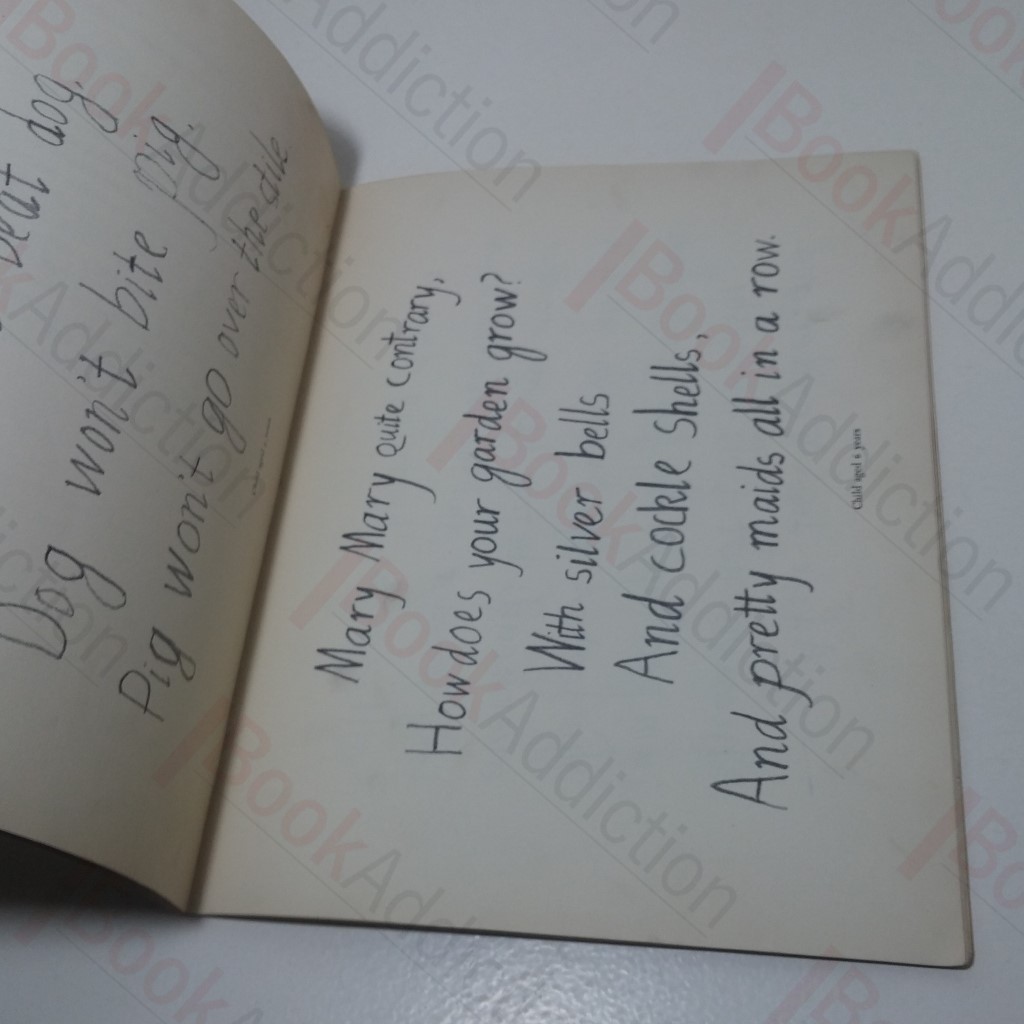 beat dog.
Dog won't bite pig.
Pig won't go over the stile
Mary Mary quite contrary,
How does your garden grow?
With silver bells
And cockle shells,
And pretty maids all in a row.
Child aged 6 years
BookAddiction